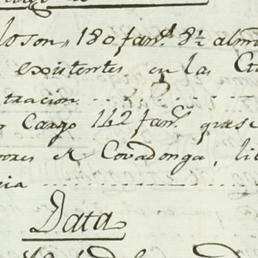 loson, 180 fan.s 8½ alm
existentes en las C
tracion
Cargo 142 fan.s que se
ores de Covadonga, li
cia
Data